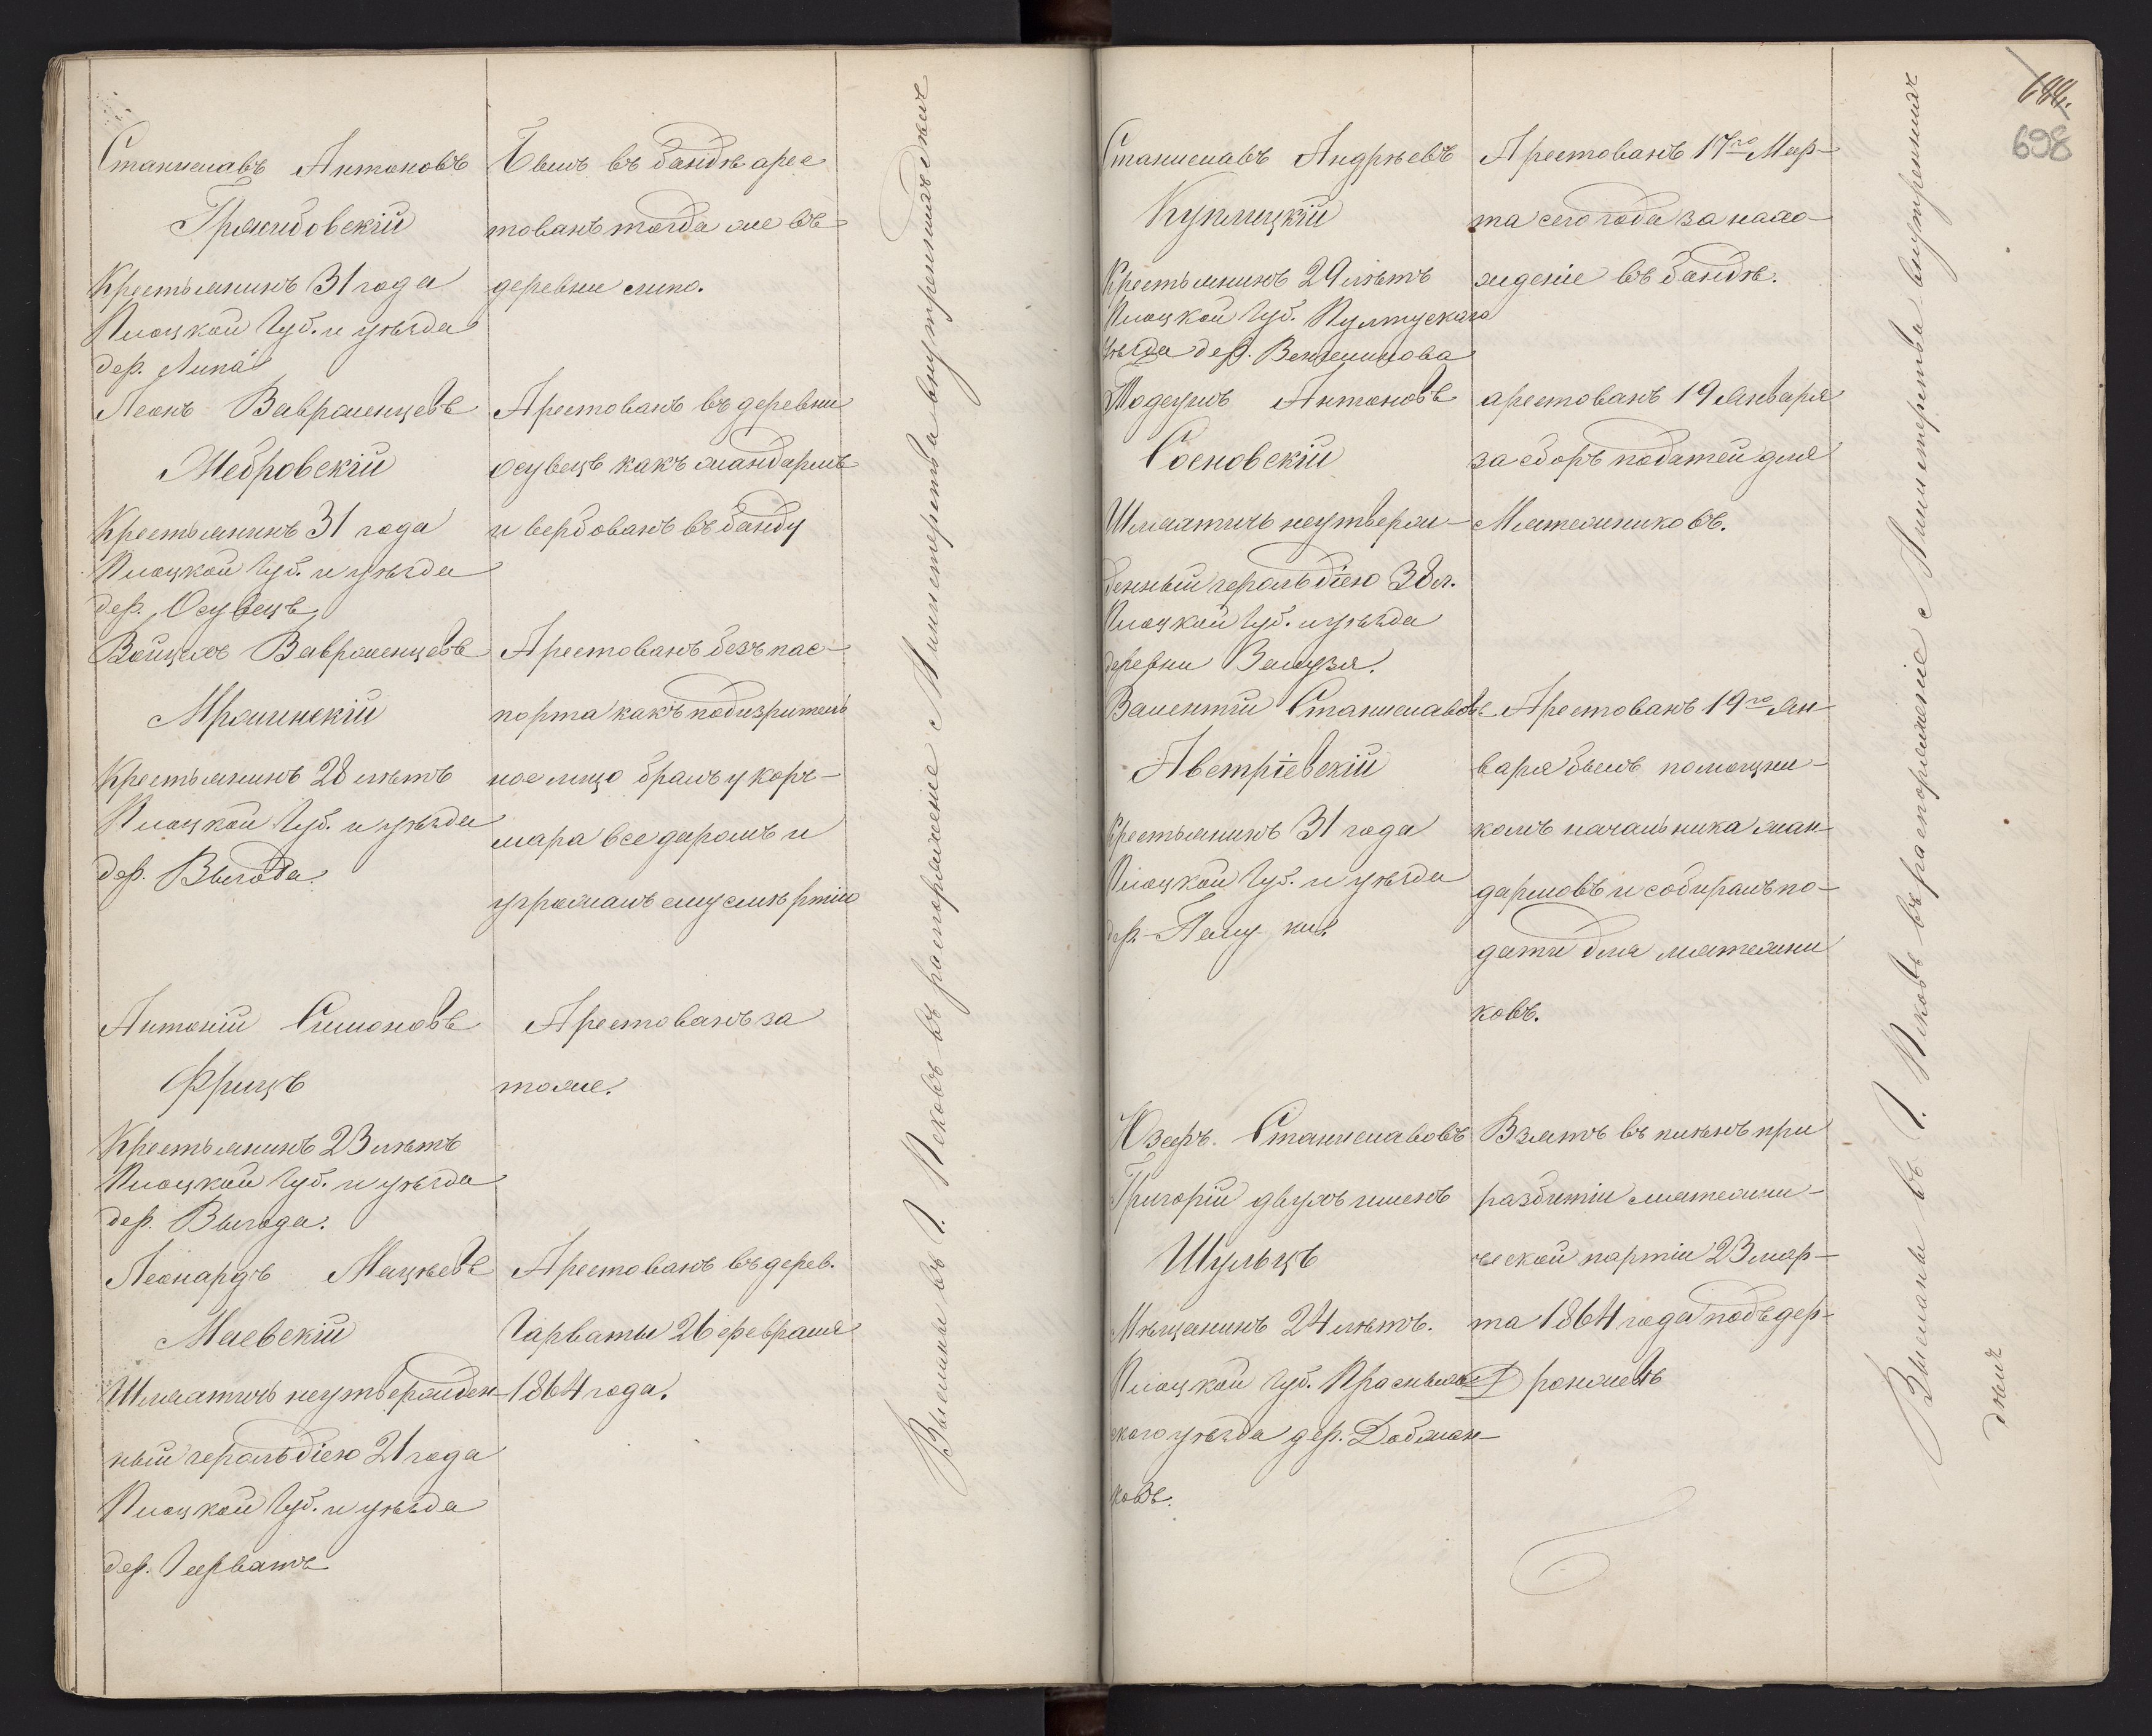 Станиславъ Антоновъ
Гржибовскій
Крестьянинъ 31 года
Плоцкой Губ. и уѣзда
дер. Липа
Былъ въ бандѣ арес
тованъ тогда же въ
деревни
Леонъ Ваврженцевъ
Мебровскій
Крестьянинъ 31 года
Плоцкой Губ. и уѣзда
дер. Осувецъ
Арестованъ въ деревни
осувецъ какъ жандармъ
и вербовалъ въ банду
Войцехъ Ваврженцевъ
Мрожинскій
Крестьянинъ 28 лѣтъ
Плоцкой Губ. и уѣзда
дер. Выгода
Арестованъ безъ пас-
порта какъ подизритель
ное лицо бралъ у корч-
мара все даромъ и
угрожалъ ему смѣртію
Антоній Симоновъ
Фрицъ
Крестьянинъ 23 лѣтъ
Плоцкой Губ. и уѣзда
дер. Выгода.
Арестованъ за
тоже.
Леонардъ Мацѣевъ
Маевскій
Шляхтичь неутвержден-
ный герольдіею 21 года
Плоцкой Губ. и уѣзда
дер. Гарватъ
Арестованъ въ дерев.
Гарваты 26 февраля
1864 года.
Высланы въ Г. Псковъ въ распоряженіе Министерства внутреннихъ дѣлъ
644.
698
Станиславъ Андрѣевъ
Куплицкій
Крестьянинъ 29 лѣтъ
Плоцкой Губ. Пултускаго
уѣзда дер.
Арестованъ 17го Мар-
та сего года за нахо-
жденіе въ бандѣ.
Тадеушъ Антоновъ
Сосновскій
Шляхтичь неутверж-
денный герольдіею 38 л.
Плоцкой Губ. и уѣзда
деревни
арестованъ 19 Января
за сборъ податей для
Мятежниковъ.
Валентій Станиславовъ
Австріевскій
Крестьянинъ 31 года
Плоцкой Губ. и уѣзда
дер.
Арестованъ 19го Ян
варя былъ помощни-
комъ начальника жан
дармовъ и собиралъ по-
дати для мятежни
ковъ.
Юзефъ Станиславовъ
Григорій двухъ именъ
Шульцъ
Мѣщанинъ 24 лѣтъ.
Плоцкой Губ. Праснышъ
скаго уѣзда дер. Добжан-
ковъ.
Взятъ въ плѣнъ при
разбитіи мятежни-
ческой партіи 23 мар-
та 1864 года подъ дер-
Высланы въ Г. Псковъ въ распоряженіе Министерства внутреннихъ
дѣлъ